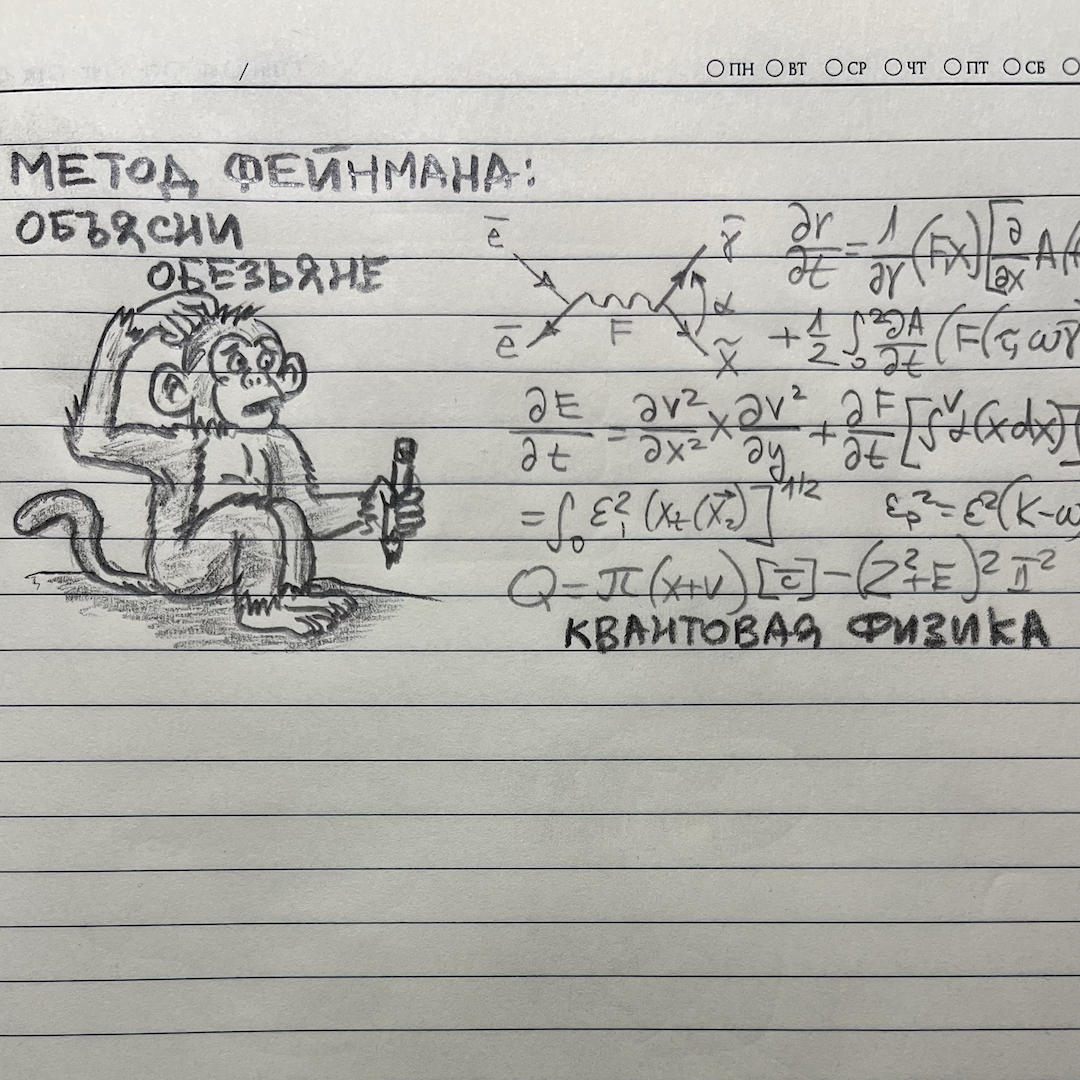 / ПН ВТ СР ЧТ ПТ СБ
МЕТОД ФЕЙНМАНА:
ОБЪЯСНИ
ОБЕЗЬЯНЕ
e̅ γ̅
e̅ F α x̃
∂r/∂t = 1/∂γ (F,x) [∂/∂x A(
+ 1/2 ∫₀² ∂A/∂t (F(τ, ωγ̅
∂E/∂t = ∂v²/∂x² × ∂v²/∂y + ∂F/∂t [∫ᵛ α(x dx)
= ∫₀ ε₁² (xₜ(x⃗₂)]^1/2 εₚ² = ε²(K-ω
Q = π(x+v)[c̅] - (Z²+E)² I²
КВАНТОВАЯ ФИЗИКА